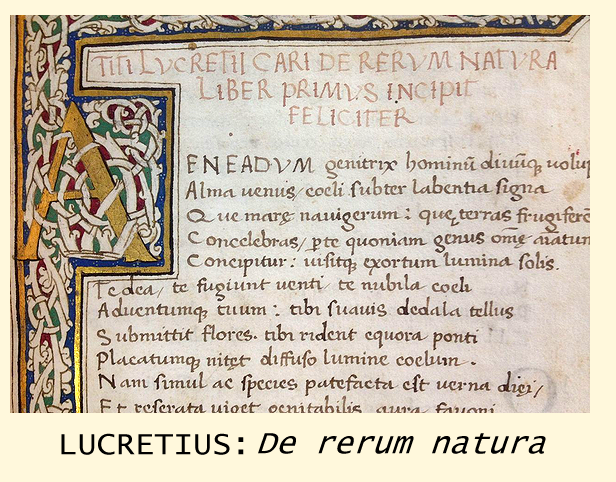 TITI LVCRETII CARI DE RERVM NATVRA
LIBER PRIMVS INCIPIT
FELICITER
AENEADVM genitrix hominū diuūq; volup
Alma venus/ coeli subter labentia signa
Que marę nauigerum: quę terras frugiferē
Concelebras/ ꝑte quoniam genus omę aīatum
Concipitur: uisitq; exortum lumina solis.
Te dea/ te fugiunt venti/ te nubila coeli
Aduentumq; tuum: tibi suauis dedala tellus
Submittit flores. tibi rident equora ponti
Placatumq; nitęt diffuso lumine coelum.
Nam simul ac species patefacta est verna diei/
Et reserata uiget genitabilis aura fauoni
LUCRETIUS: De rerum natura